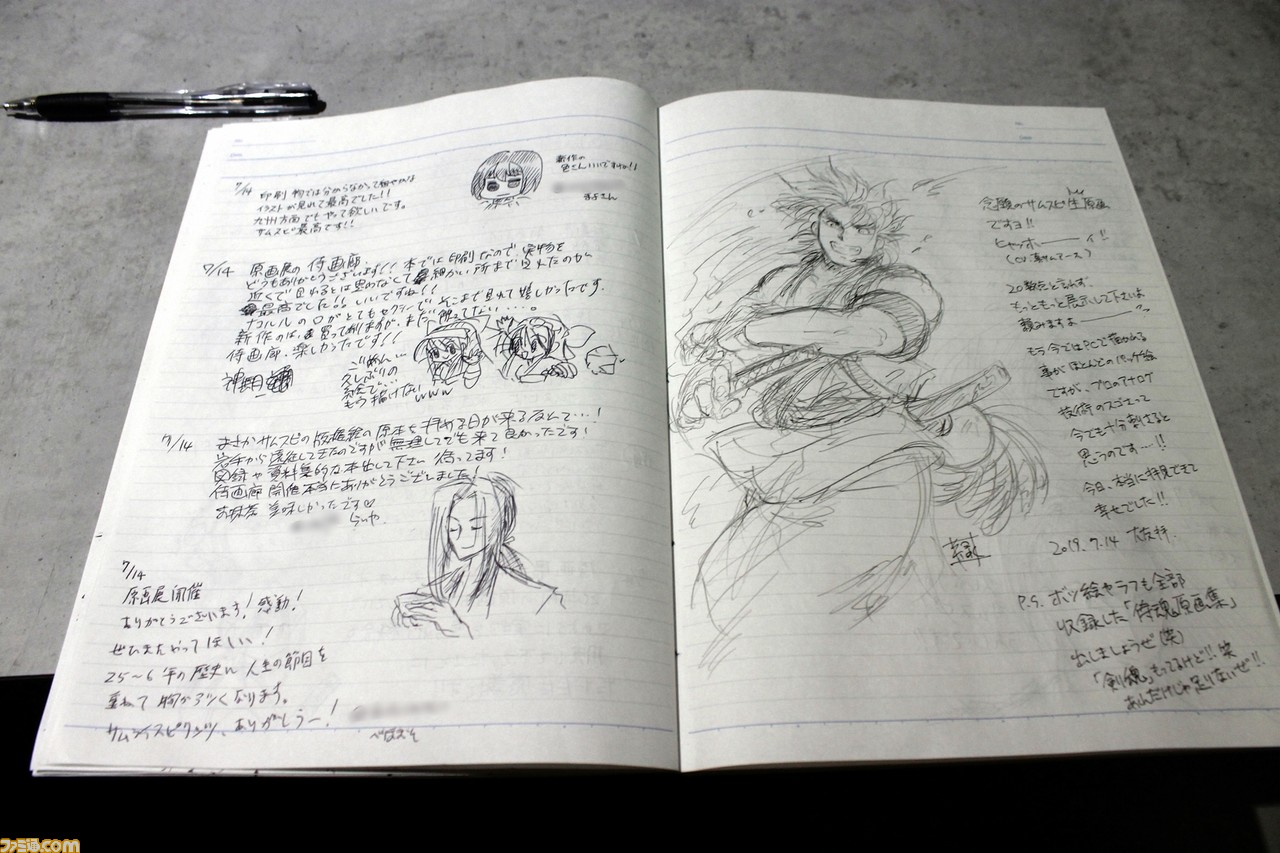 7/14 印刷物では分からなかった細やかな
イラストが見れて最高でした!!
九州方面でもやって欲しいです。
サムスピ最高です!!
新作の
色さんいいですよね!!
7/14 原画展の侍画廊、
どうもありがとうございます!! 本では印刷なので、実物を
近くで見れるとは思わなくて細かい所まで見れたのが
最高でした!! いいですね!!
ナコルルの口がとてもセクシーでそこまで見れて嬉しかったです。
新作のは、買ってありますが、まだ触ってない…。
侍画廊、楽しかったです!!
ごめん…
久しぶりの
絵で…
もう描けないwww
7/14 まさかサムスピの版権絵の原本を拝める日が来るなんて…!
岩手から遠征してきたのですが無理してでも来て良かったです!
図録や資料集的な本出して下さい 待ってます!
侍画廊 開催本当にありがとうございました!
お抹茶 美味しかったです♡
らいや
7/14
原画展開催
ありがとうございます! 感動!
ぜひまたやってほしい!
25~6年の歴史に人生の節目を
重ねて胸がアツくなります。
サムライスピリッツ、ありがとうー!
念願のサムスピ生原画
ですヨ!!
ヒャッホーーイ!!
20数点と言わず、
もっともっと展示して下さいよ
頼みますよーー
もう今ではPCで描かれる
事がほとんどのパッケ絵
ですが、プロのアナログ
技術のスゴさって
今でも十分刺さると
思うのです…!!
今日、本当に拝見できて
幸せでした!!
2019.7.14
P.S. ボツ絵やラフも全部
収録した「侍魂原画集」
出しましょうぜ(笑)
「剣魂」もってるけど!! 笑
あんだけじゃ足りないぜ!!
ファミ通.com